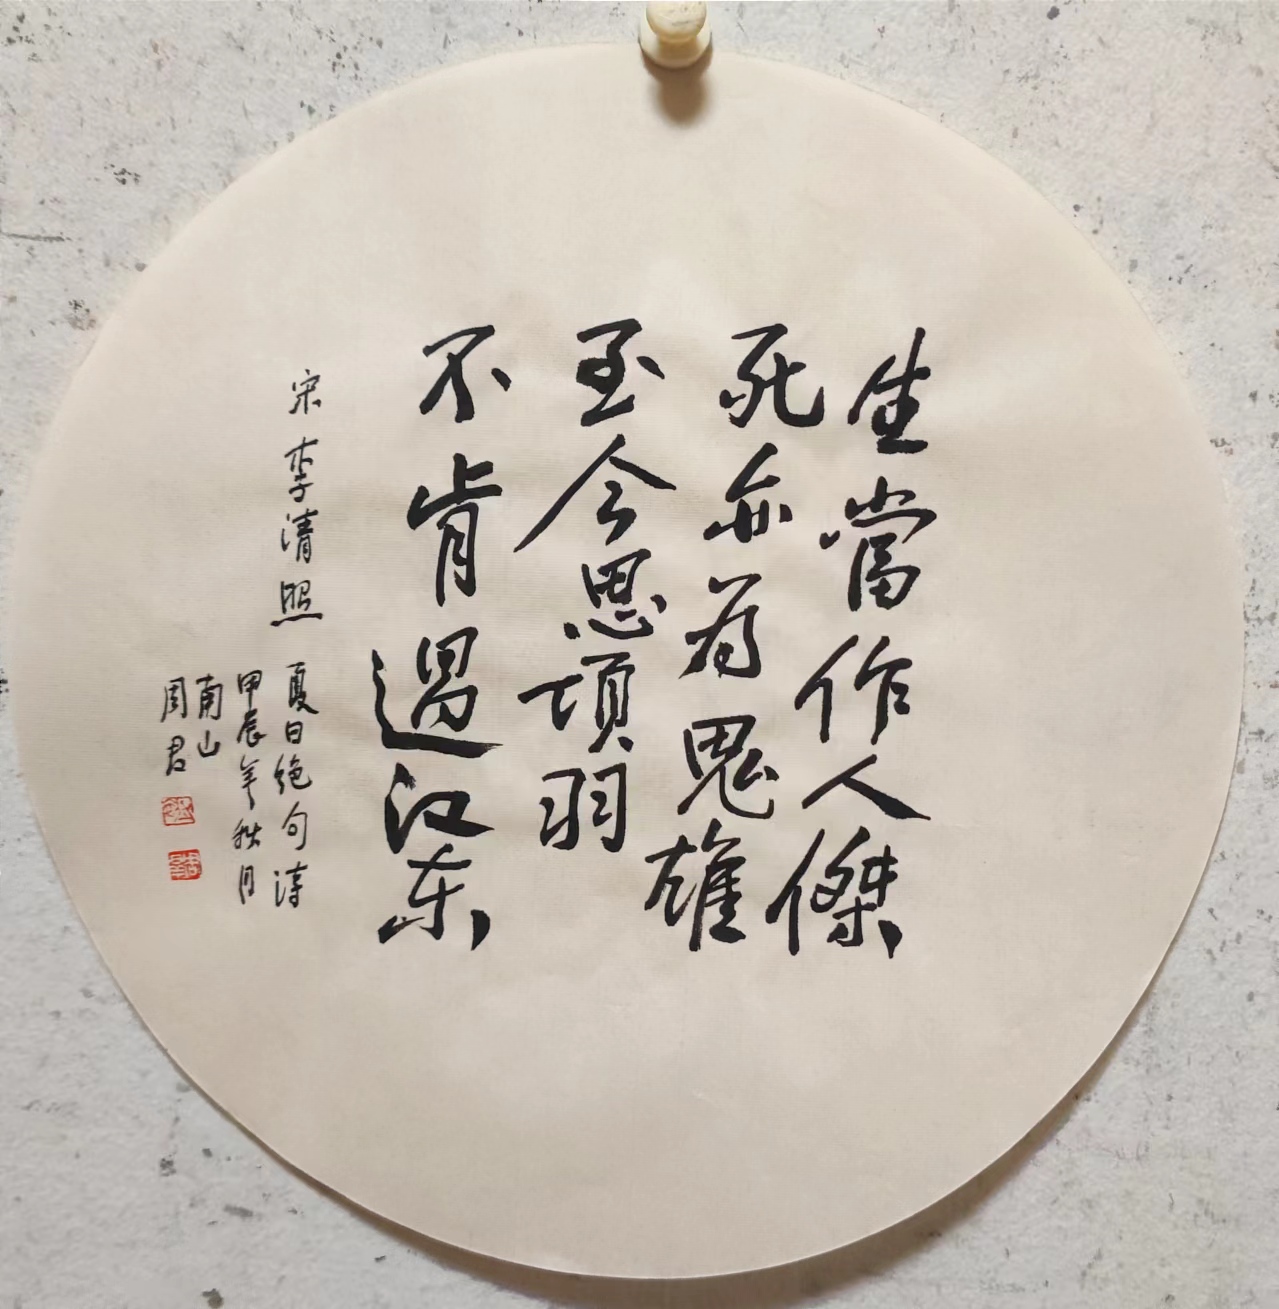 生當作人傑
死亦为鬼雄
至今思項羽
不肯過江东
宋李清照夏日绝句诗
甲辰年秋月
南山
周君